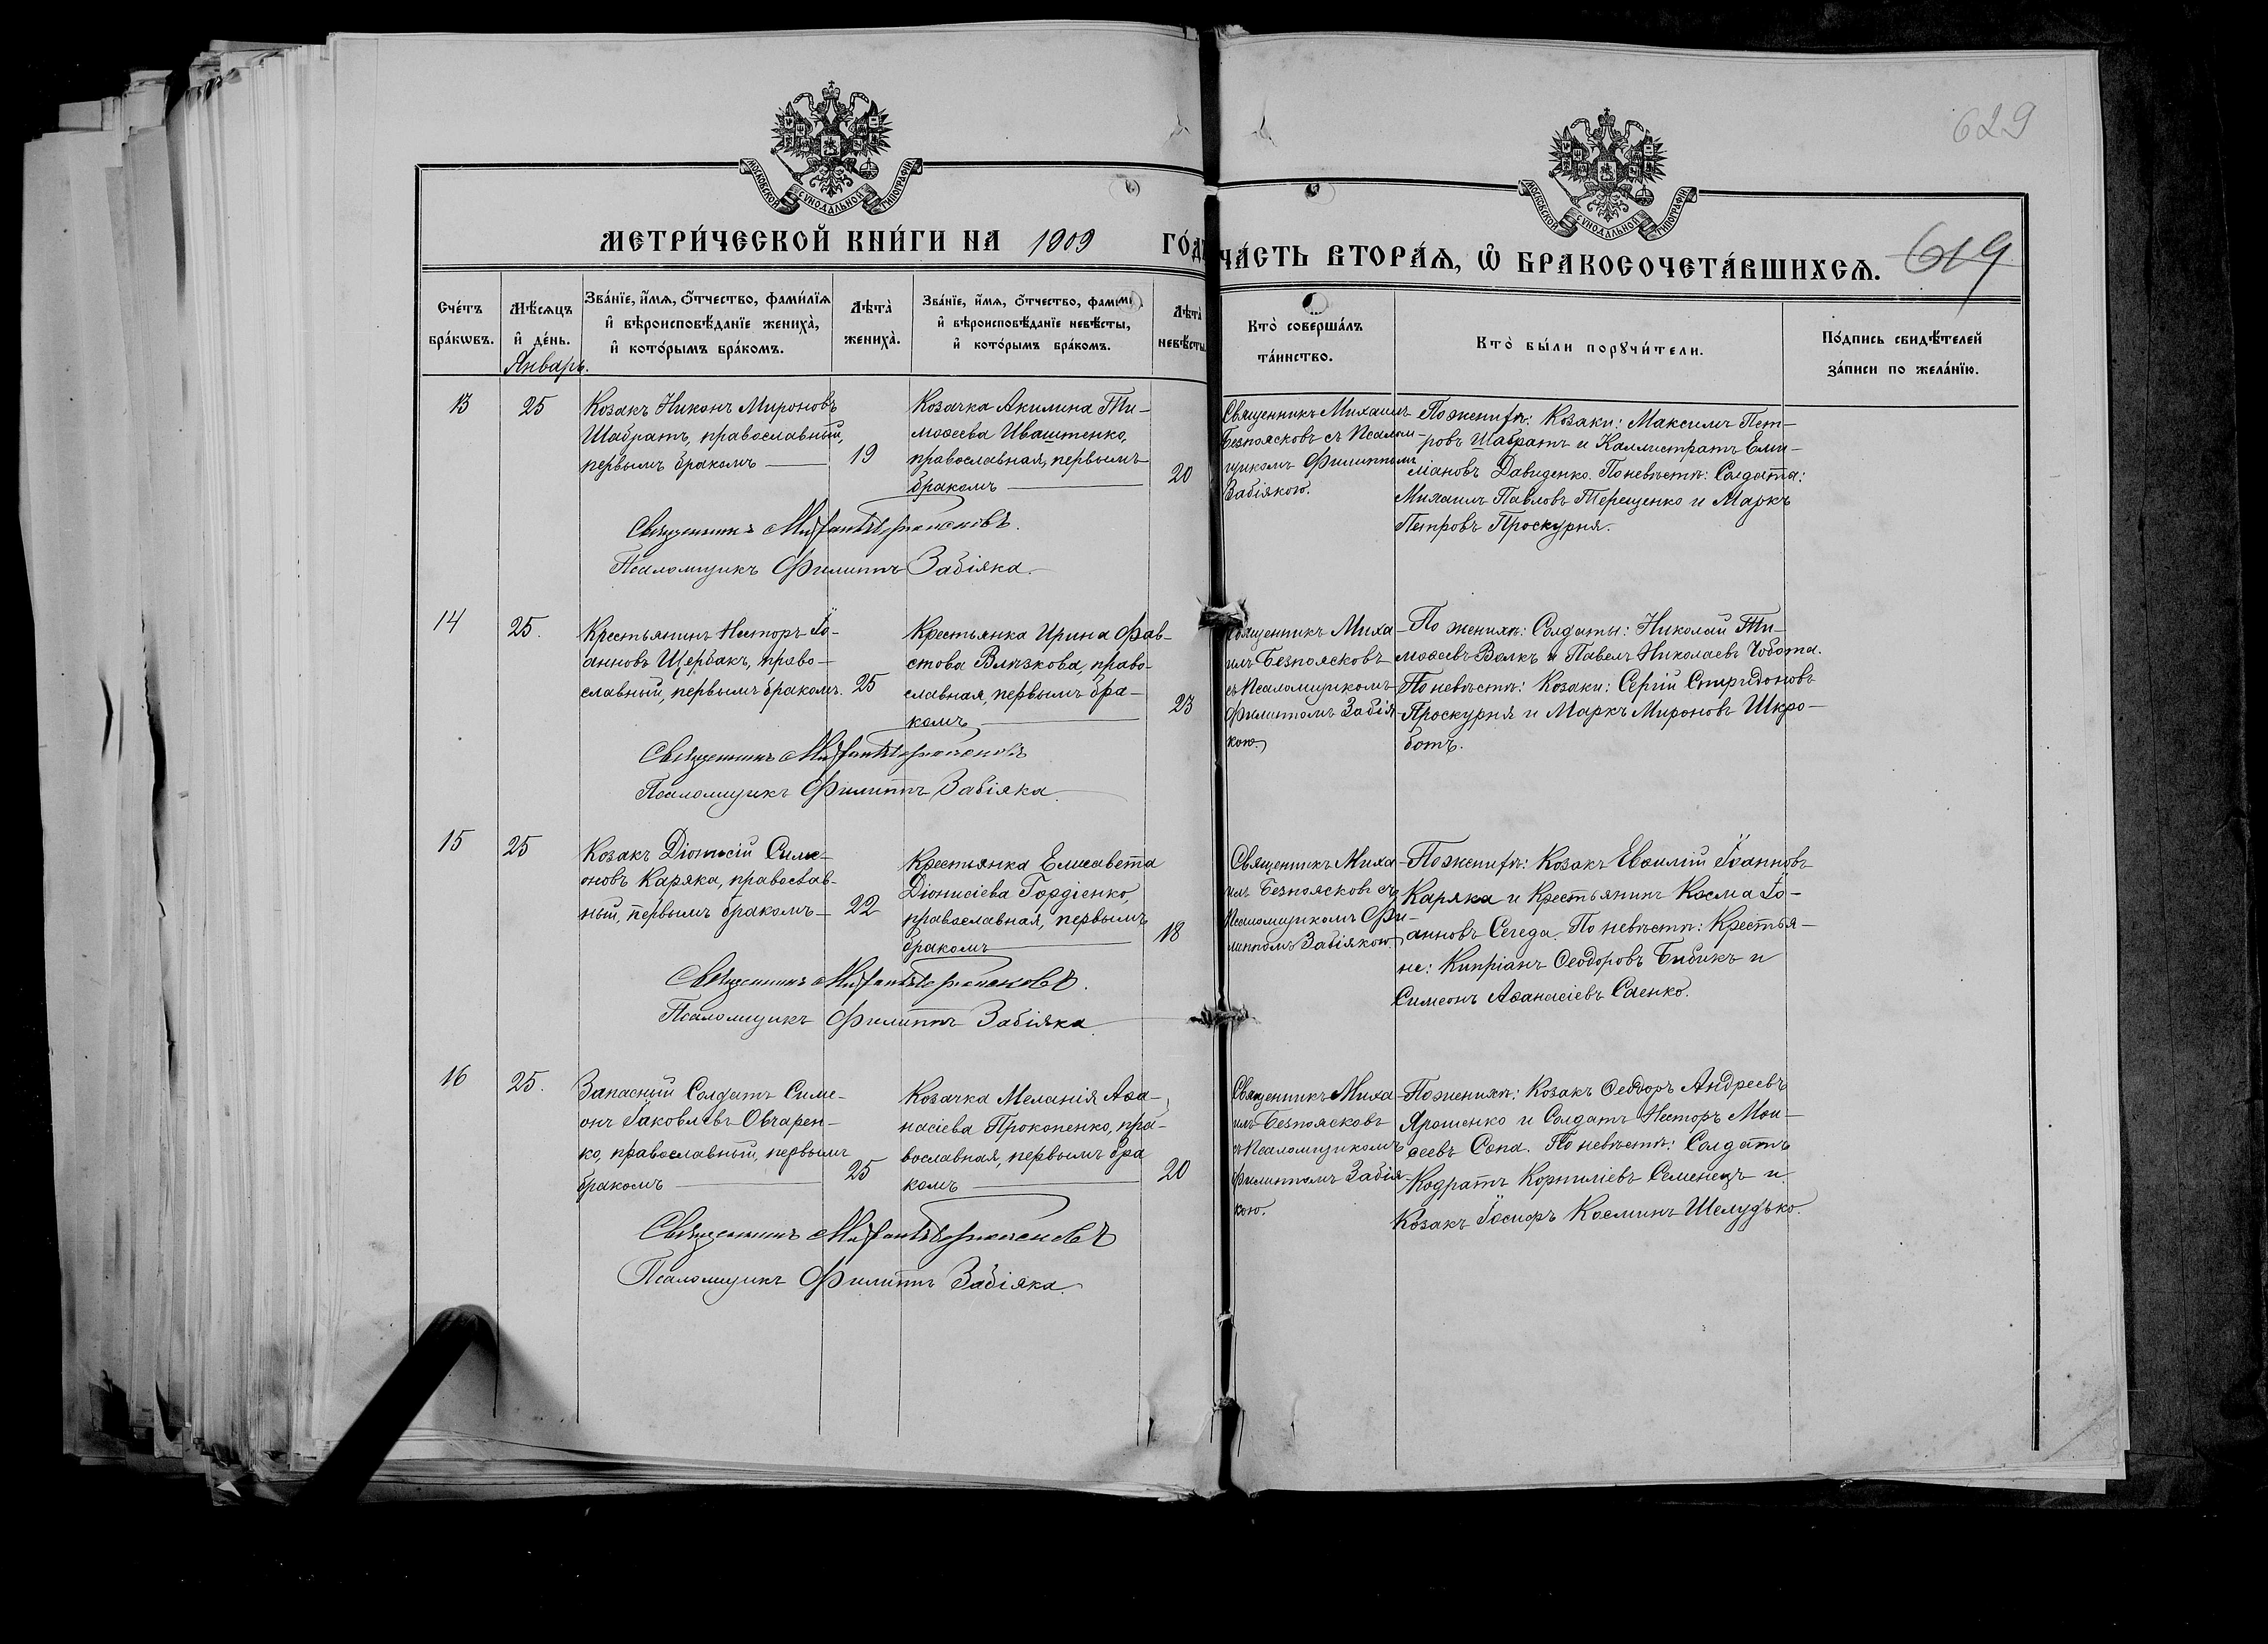 629
МОСКОВСКОЙ СѴНОДАЛЬНОЙ ТИПОГРАФІИ
МОСКОВСКОЙ СѴНОДАЛЬНОЙ ТИПОГРАФІИ
МЕТРИ́ЧЕСКОЙ КНИ́ГИ НА 1909 ГО́ДЪ
ЧА́СТЬ ВТОРА́Ѧ, Ѽ БРАКОСОЧЕТА́ВШИХСѦ.
619
Сче́тъ бра́кѡвъ.
Мѣ́сѧцъ и҆ де́нь.
Январь.
Зва́нїе, и҆́мѧ, ѻ҆́тчество, фами́лїѧ и҆ вѣроисповѣ́данїе жениха̀, и҆ кото́рымъ бра́комъ.
Лѣта̀ жениха̀.
Зва́нїе, и҆́мѧ, ѻ҆́тчество, фами и҆ вѣроисповѣ́данїе невѣ́сты, и҆ кото́рымъ бра́комъ.
Лѣта̀ невѣ́сты
Кто̀ соверша́лъ та́инство.
Кто̀ бы́ли порꙋчи́тели.
По́дпись свидѣ́телей за́писи по жела́нїю.
13
25
Козакъ Никонъ Мироновъ
Шабратъ, православный,
первымъ бракомъ
19
Козачка Акилина Ти-
моѳеева Иваштенко,
православная, первымъ
бракомъ
20
Священникъ Михаилъ
Безпоясковъ съ Псалом-
щикомъ Филиппомъ
Забіякою.
По женихѣ: Козаки: Максимъ Пет-
ровъ Шабратъ и Каллистратъ Еми-
ліановъ Давиденко. По невѣстѣ: Солдата:
Михаилъ Павловъ Терещенко и Маркъ
Петровъ Проскурня.
Священникъ Михаилъ Безпоясковъ.
Псаломщикъ Филиппъ Забіяка.
14
25.
Крестьянинъ Несторъ Іо-
анновъ Щербакъ, право-
славный, первымъ бракомъ.
25
Крестьянка Ирина Фав-
стова Влѣзкова, право-
славная, первымъ бра-
комъ
23
Священникъ Миха-
илъ Безпоясковъ
съ Псаломщикомъ
Филиппомъ Забія-
кою.
По женихѣ: Солдаты: Николай Ти-
моѳеевъ Волкъ и Павелъ Николаевъ Чобота.
По невѣстѣ: Козаки: Сергій Спиридоновъ
Проскурня и Маркъ Мироновъ Шкро-
ботъ.
Священникъ Михаилъ Безпоясковъ
Псаломщикъ Филиппъ Забіяка.
15
25
Козакъ Діонисій Симе-
оновъ Каряка, православ-
ный, первымъ бракомъ
22
Крестьянка Елисавета
Діонисіева Гордіенко,
православная, первымъ
бракомъ
18
Священникъ Миха-
илъ Безпоясковъ съ
Псаломщикомъ Фи-
липпомъ Забіякою.
По женихѣ: Козакъ Евѳимій Іоанновъ
Каряка и Крестьянинъ Косма Іо-
анновъ Сегеда. По невѣстѣ: Крестья-
не: Кипріанъ Ѳеодоровъ Бибикъ и
Симеонъ Аѳанасіевъ Саенко.
Священникъ Михаилъ Безпоясковъ.
Псаломщикъ Филиппъ Забіяка.
16
25.
Запасный Солдатъ Симе-
онъ Іаковлевъ Овчарен-
ко, православный, первымъ
бракомъ
25
Козачка Меланія Аѳа-
насіева Прокопенко, пра-
вославная, первымъ бра
комъ
20
Священникъ Миха-
илъ Безпоясковъ
съ Псаломщикомъ
Филиппомъ Забія-
кою.
По женихѣ: Козакъ Ѳеодоръ Андреевъ
Ярошенко и Солдатъ Несторъ Мои-
сеевъ Сопа. По невѣстѣ: Солдатъ
Кодратъ Корниліевъ Семенецъ и
Козакъ Іосифъ Косминъ Шелудько.
Священникъ Михаилъ Безпоясковъ
Псаломщикъ Филиппъ Забіяка.